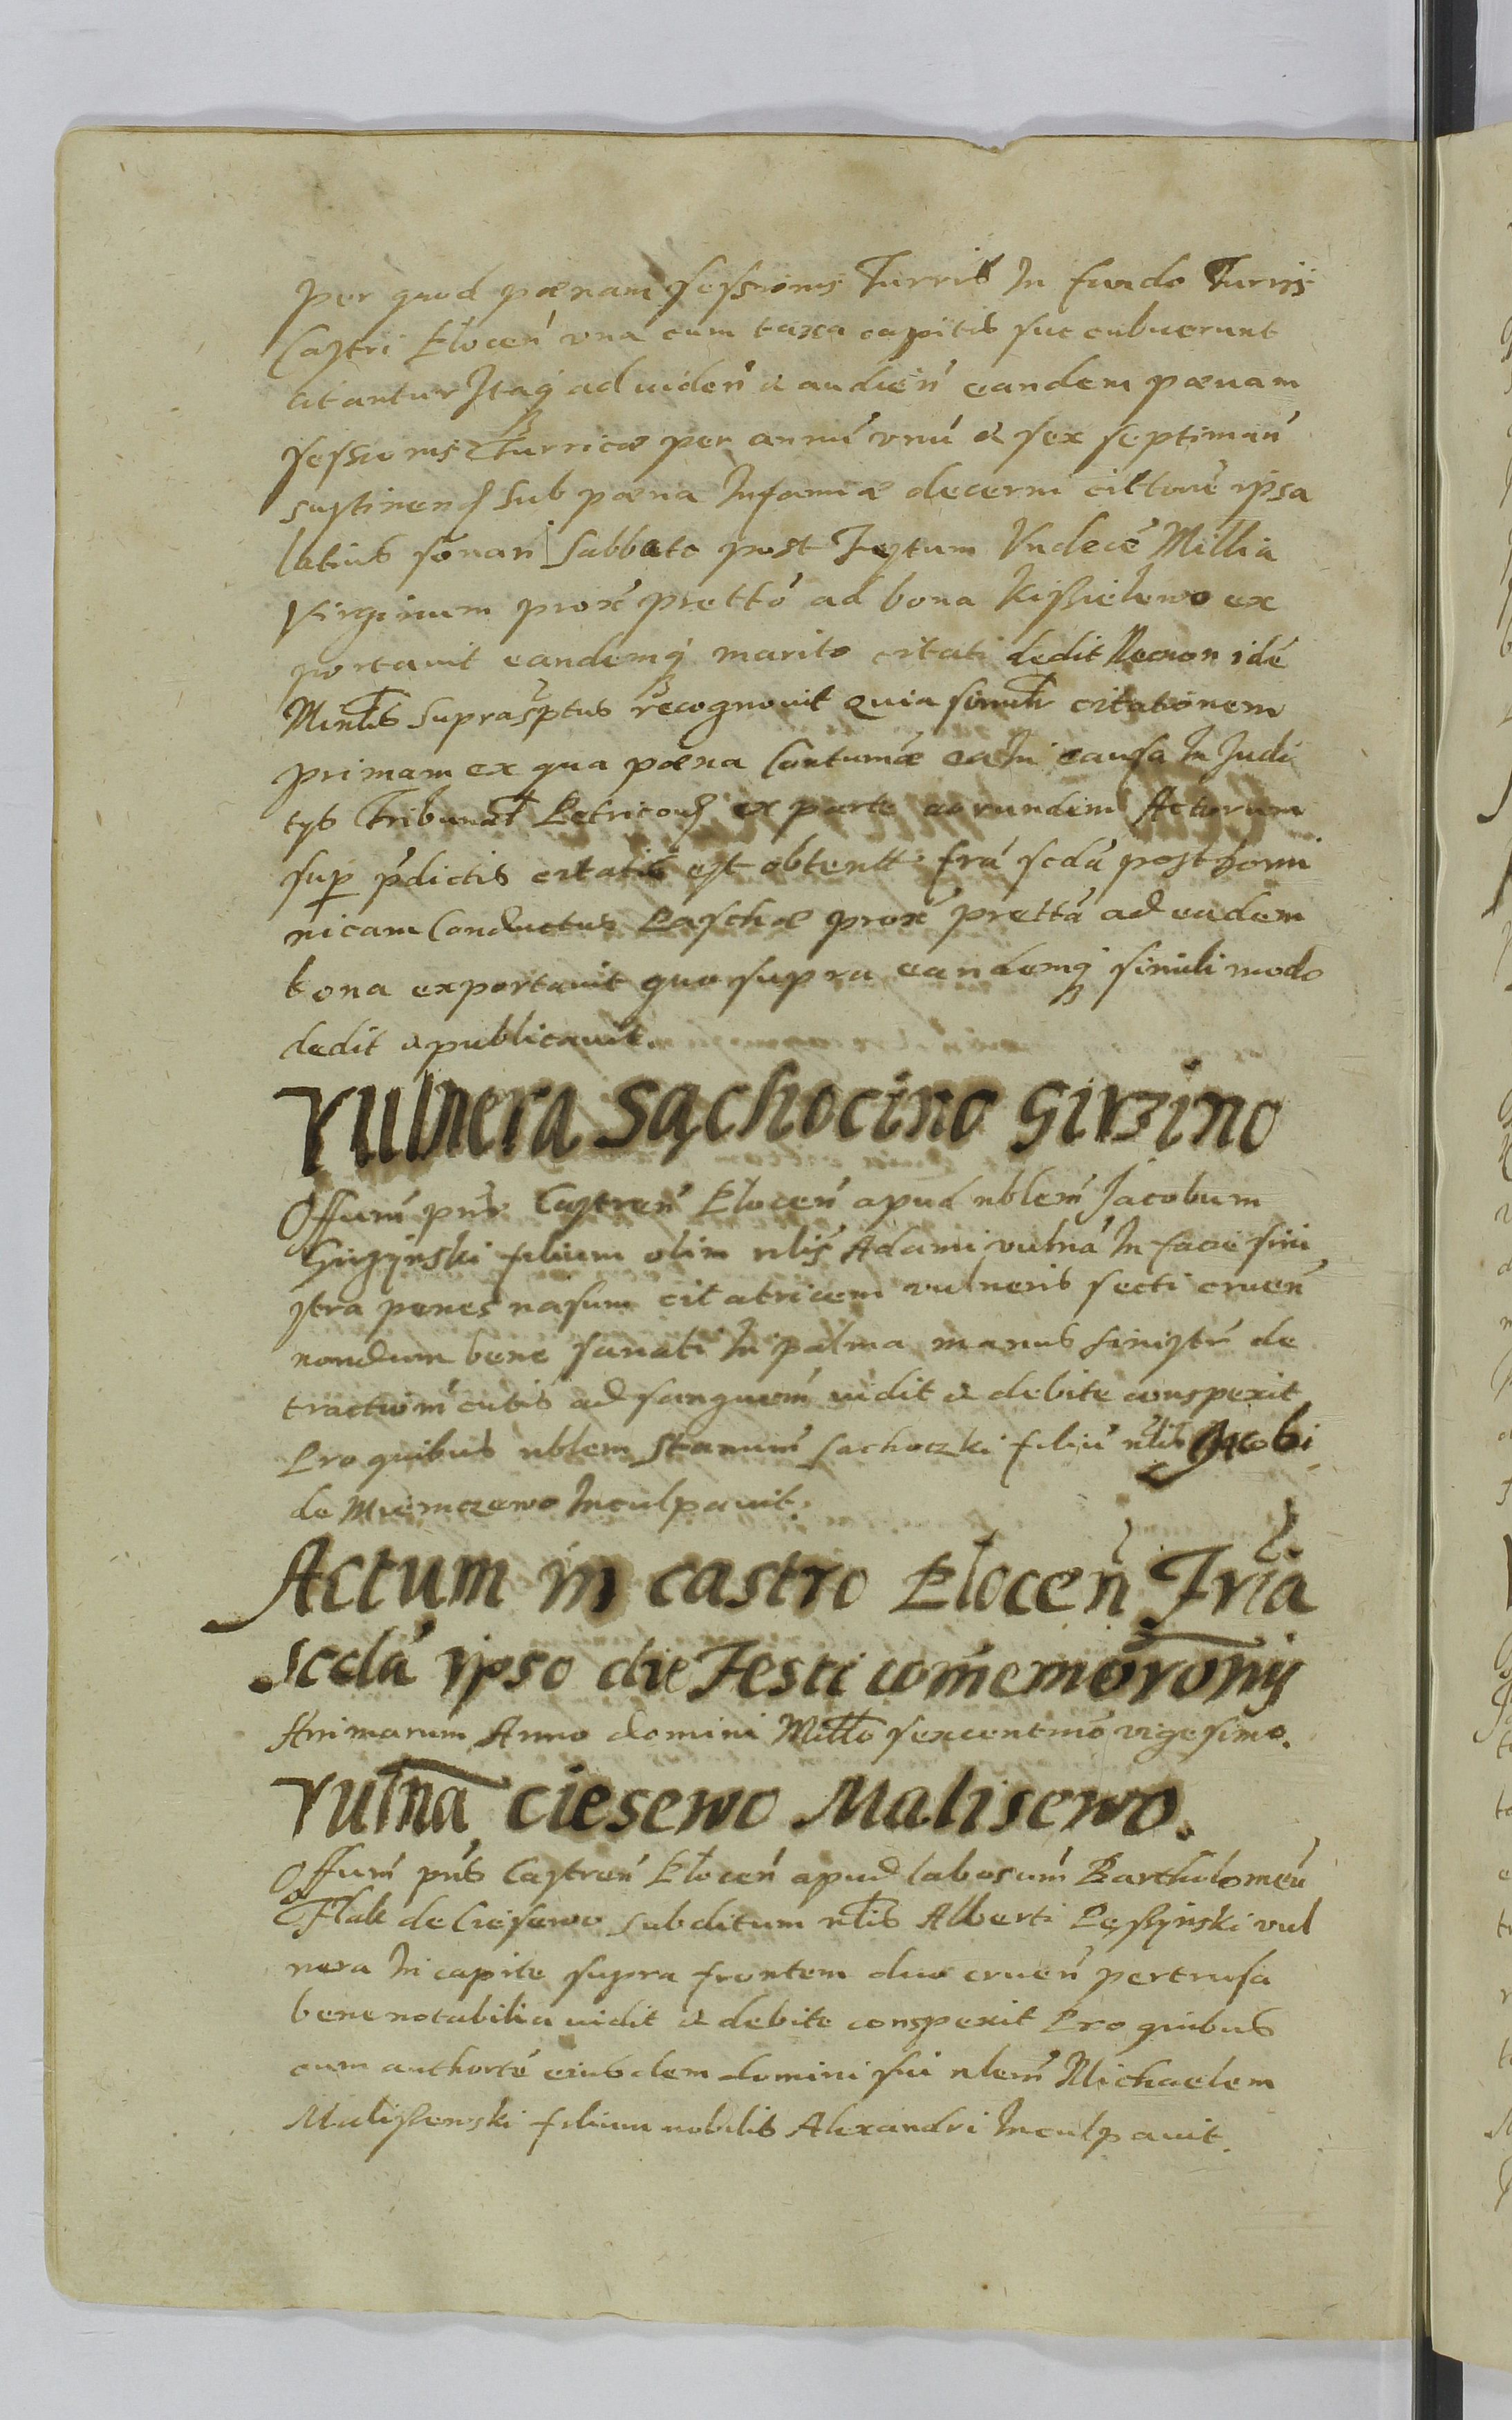 per quod pœnam sessionis Turris In fundo Turris
Castri Plocen̄ vna cum taxa capitis succubuerunt
citantur Itaq̨ ad uideń & audień eandem pœnam
sessionis Turricæ per annú vnú & sex septimań
sustinenď sub pœna Infamiæ decerni cittoné ipsa
latius sonań Sabbato post Festum Vndecé Millia
Virginum prox́ prettó ad bona Kissielewo ex
portauit eandemq̨ marito citati dedit Necnon idé
Minlis suprasptus recognouit Quia simili citationem
primam ex qua pœna Contumaæ causa In Judi
tys Tribunal Petricoń ex parte eorundem Actorum
sup pdictis citatis est obtentt fria scdá post Domi
nicam Conductus Paschæ prox́ prettá ad eadem
bona exportauit quo supra eandemq̨ simili modo
dedit & publicauit.
Vulnera Sąchocino Girzino
Offium pns Castreń Płoceń apud nblem Jacobum
Girzÿnski filium olim nlis Adami vulna In facie sini
stra penes nasum citatricem vulneris secti crueń
nondum bene sanati In palma manus sinistr̃ de
tractioń cutis ad sanguiem uidit & debite conspexit
Pro quibus nblem Stanium Sachoczki filiú nlis Jacobi
de Niemczewo Inculpauit.
Actum in castro Płoceń Fria
scda ipso die Festi commemorõnis
Animarum Anno domini Millo sexcentmo vigesimo.
Vulna Ciesewo Malisewo.
Offium pns Castreń Płoceń apud labosum Bartholomeú
Flak de Ciesewo subditum nlis Alberti Pęssÿnski vul
nera In capite supra frontem duo crueń pertusa
bene notabilia uidit & debite conspexit Pro quibus
cum authorté eiusdem domini sui nlem Michaelem
Malissewski filium nobilis Alexandri Inculpauit.